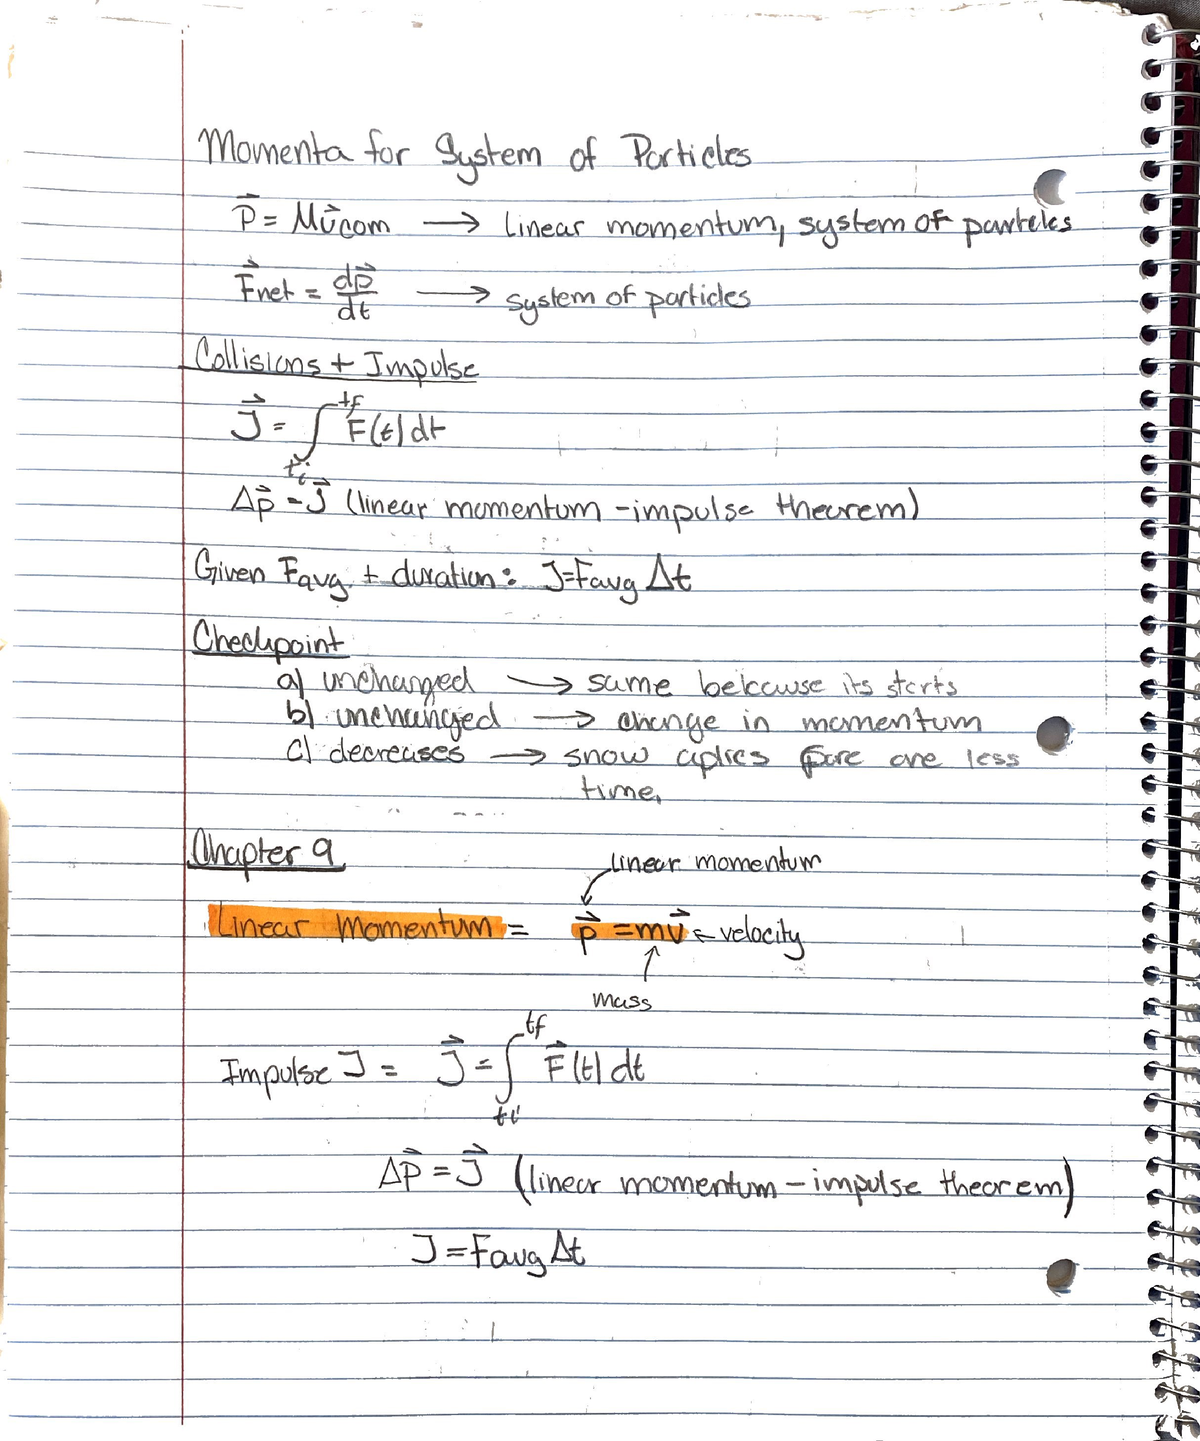 Momenta for System of Particles
P⃗ = Mv⃗com → linear momentum, system of partcles
F⃗net = dp⃗/dt → system of particles
Collisions + Impulse
J⃗ = ∫ti^tf F⃗(t) dt
Δp⃗ = J⃗ (linear momentum - impulse theorem)
Given Favg + duration: J=Favg Δt
Checkpoint
a) unchanged → same because its starts
b) unchanged → change in momentum
c) decreases → snow aplies over less
time.
Chapter 9
linear momentum
Linear Momentum = p⃗ = mv⃗ ← velocity
mass
Impulse J = J⃗ = ∫ti^tf F⃗(t) dt
Δp⃗ = J⃗ (linear momentum - impulse theorem)
J = Favg Δt